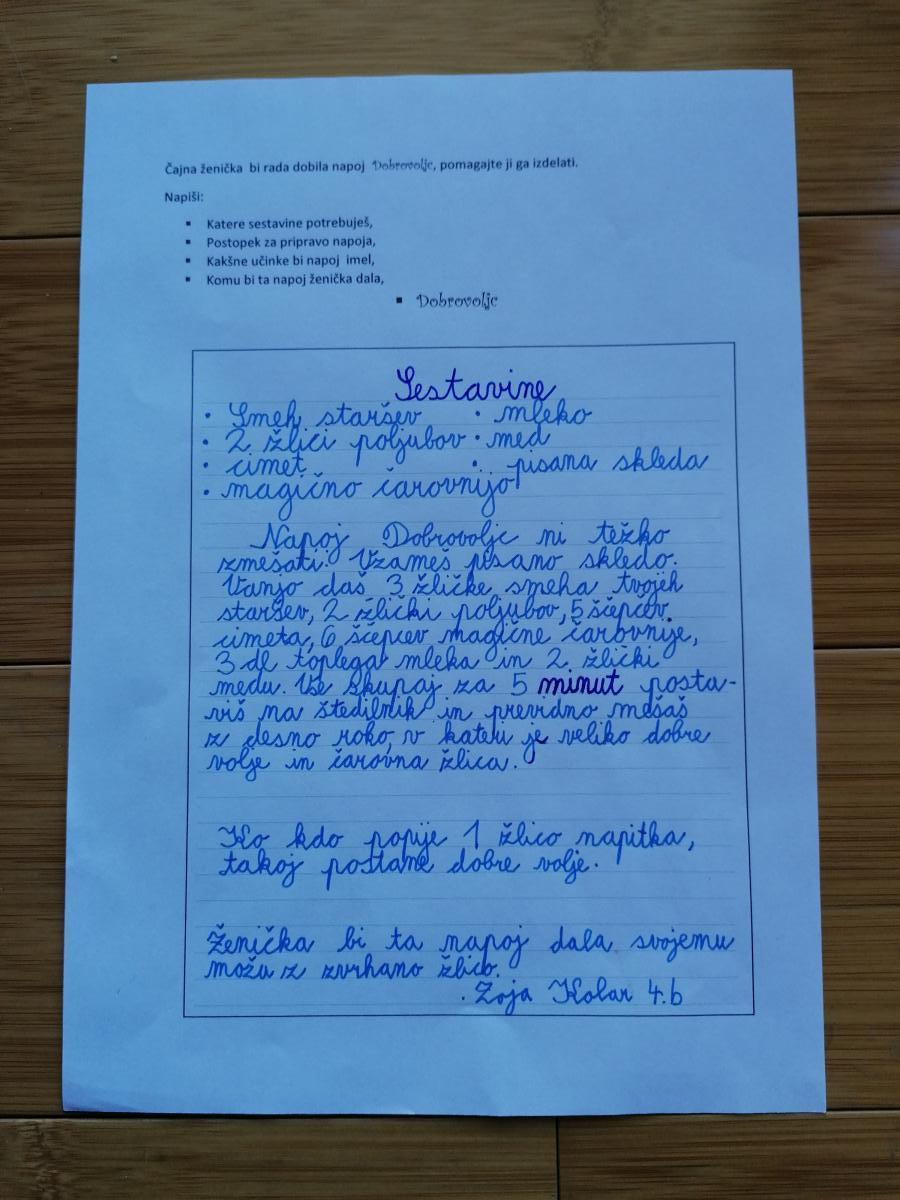 Čajna ženička bi rada dobila napoj Dobrovoljc, pomagajte ji ga izdelati.
Napiši:
▪ Katere sestavine potrebuješ,
▪ Postopek za pripravo napoja,
▪ Kakšne učinke bi napoj imel,
▪ Komu bi ta napoj ženička dala,
▪ Dobrovoljc
Sestavine
• Smeh staršev • mleko
• 2 žlici poljubov • med
• cimet • pisana skleda
• magično čarovnijo
Napoj Dobrovoljc ni težko
zmešati. Vzameš pisano skledo.
Vanjo daš 3 žličke smeha tvojih
staršev, 2 žlički poljubov, 5 ščepcev
cimeta, 6 ščepcev magične čarovnije,
3 dl toplega mleka in 2 žlički
medu. Vse skupaj za 5 minut posta-
viš na štedilnik in previdno mešaš
z desno roko, v kateri je veliko dobre
volje in čarovna žlica.
Ko kdo popije 1 žlico napitka,
takoj postane dobre volje.
Ženička bi ta napoj dala svojemu
možu z zvrhano žlico.
Zoja Kolar 4.b